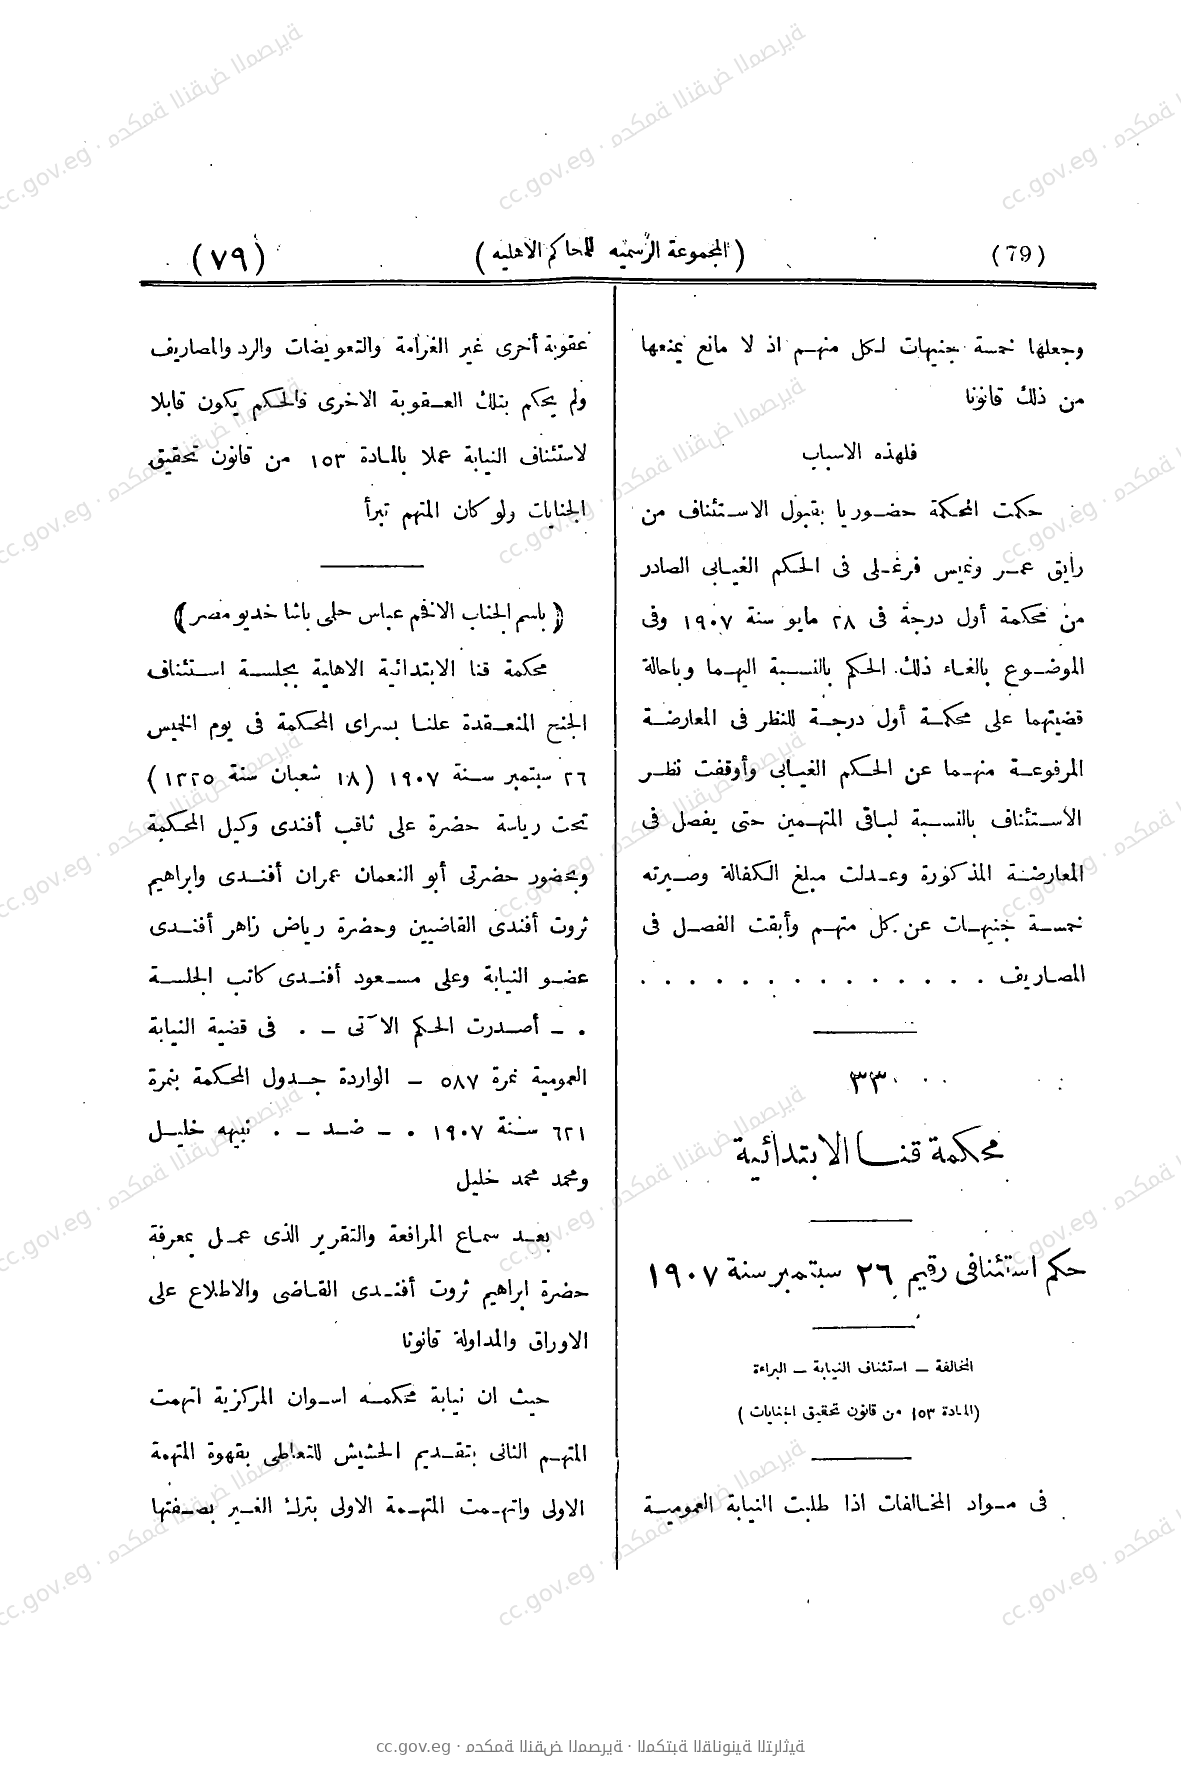 (79)
(المجموعة الرسميه للمحاكم الاهليه)
(٧٩)
وجعلها خمسة جنيهات لكل منهم اذ لا مانع يمنعها
من ذلك قانونا
فلهذه الاسباب
حكمت المحكمة حضوريا بقبول الاستئناف من
رايق عمر وغيس فرغلى فى الحكم الغيابى الصادر
من محكمة أول درجة فى ٢٨ مايو سنة ١٩٠٧ وفى
الموضوع بالغاء ذلك الحكم بالنسبة اليهما وباحالة
قضيتهما على محكمة أول درجة للنظر فى المعارضة
المرفوعة منهما عن الحكم الغيابى وأوقفت نظر
الاستئناف بالنسبة لباقى المتهمين حتى يفصل فى
المعارضة المذكورة وعدلت مبلغ الكفالة وصيرته
خمسة جنيهات عن كل متهم وأبقت الفصل فى
المصاريف . . . . . . . . . . . . . .
٣٣
محكمة قنا الابتدائية
حكم استئنافى رقيم ٢٦ سبتمبر سنة ١٩٠٧
المخالفة – استئناف النيابة – البراءة
(المادة ١٥٣ من قانون تحقيق الجنايات)
فى مواد المخالفات اذا طلبت النيابة العمومية
عقوبة أخرى غير الغرامة والتعويضات والرد والمصاريف
ولم يحكم بتلك العقوبة الاخرى فالحكم يكون قابلا
لاستئناف النيابة عملا بالمادة ١٥٣ من قانون تحقيق
الجنايات ولو كان المتهم تبرأ
(باسم الجناب الافخم عباس حلمى باشا خديو مصر)
محكمة قنا الابتدائية الاهلية بجلسة استئناف
الجنح المنعقدة علنا بسراى المحكمة فى يوم الخميس
٢٦ سبتمبر سنة ١٩٠٧ (١٨ شعبان سنة ١٣٢٥)
تحت رياسة حضرة على ثاقب أفندى وكيل المحكمة
وبحضور حضرتى أبو النعمان عمران أفندى وابراهيم
ثروت أفندى القاضيين وحضرة رياض زاهر أفندى
عضو النيابة وعلى مسعود أفندى كاتب الجلسة
. – أصدرت الحكم الآتى – . فى قضية النيابة
العمومية نمرة ٥٨٧ – الواردة جدول المحكمة بنمرة
٦٢١ سنة ١٩٠٧ . – ضد – . نبيهه خليل
ومحمد محمد خليل
بعد سماع المرافعة والتقرير الذى عمل بمعرفة
حضرة ابراهيم ثروت أفندى القاضى والاطلاع على
الاوراق والمداولة قانونا
حيث ان نيابة محكمه اسوان المركزية اتهمت
المتهم الثانى بتقديم الحشيش للتعاطى بقهوة المتهمة
الاولى واتهمت المتهمة الاولى بترك الغير بصفتها
cc.gov.eg · محكمة النقض المصرية · المكتبة القانونية التراثية